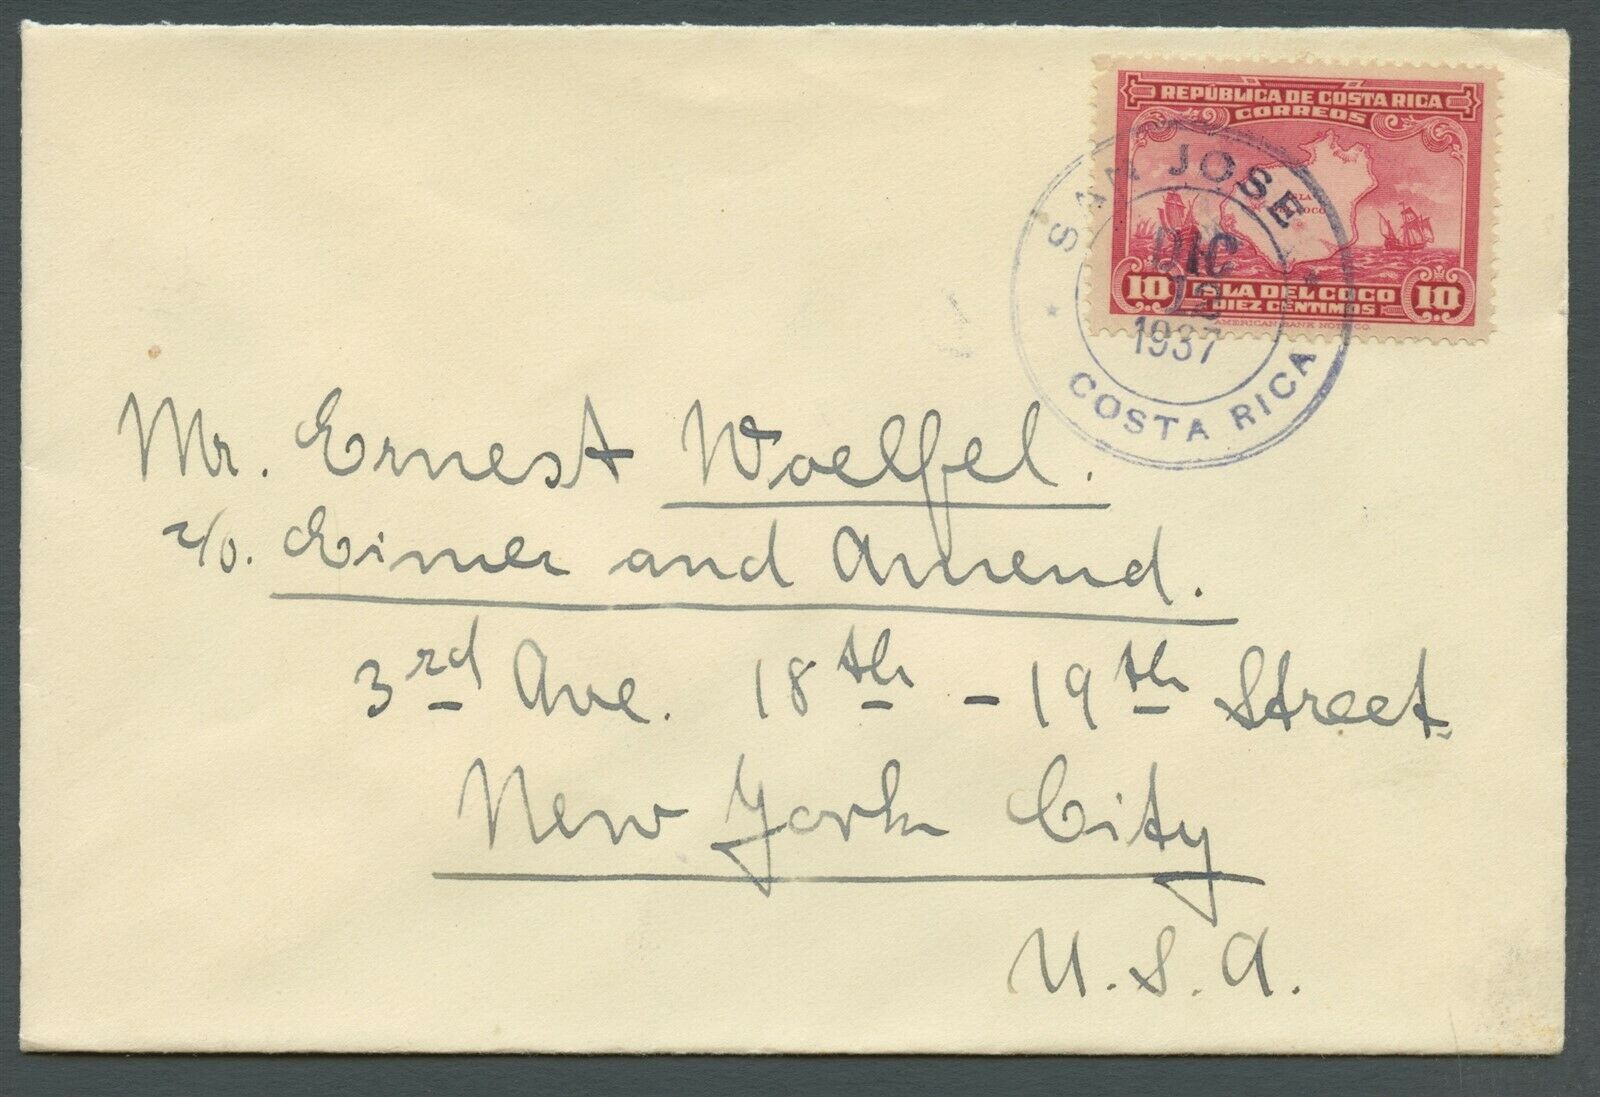 REPÚBLICA DE COSTA RICA
CORREOS
ISLA DEL COCO
10 ISLA DEL COCO 10
DIEZ CENTIMOS
AMERICAN BANK NOTE CO.
SAN JOSE
DIC
12
1937
COSTA RICA
Mr. Ernest Woelfel.
c/o. Eimer and Amend.
3rd Ave. 18th - 19th Street.
New York City
U.S.A.